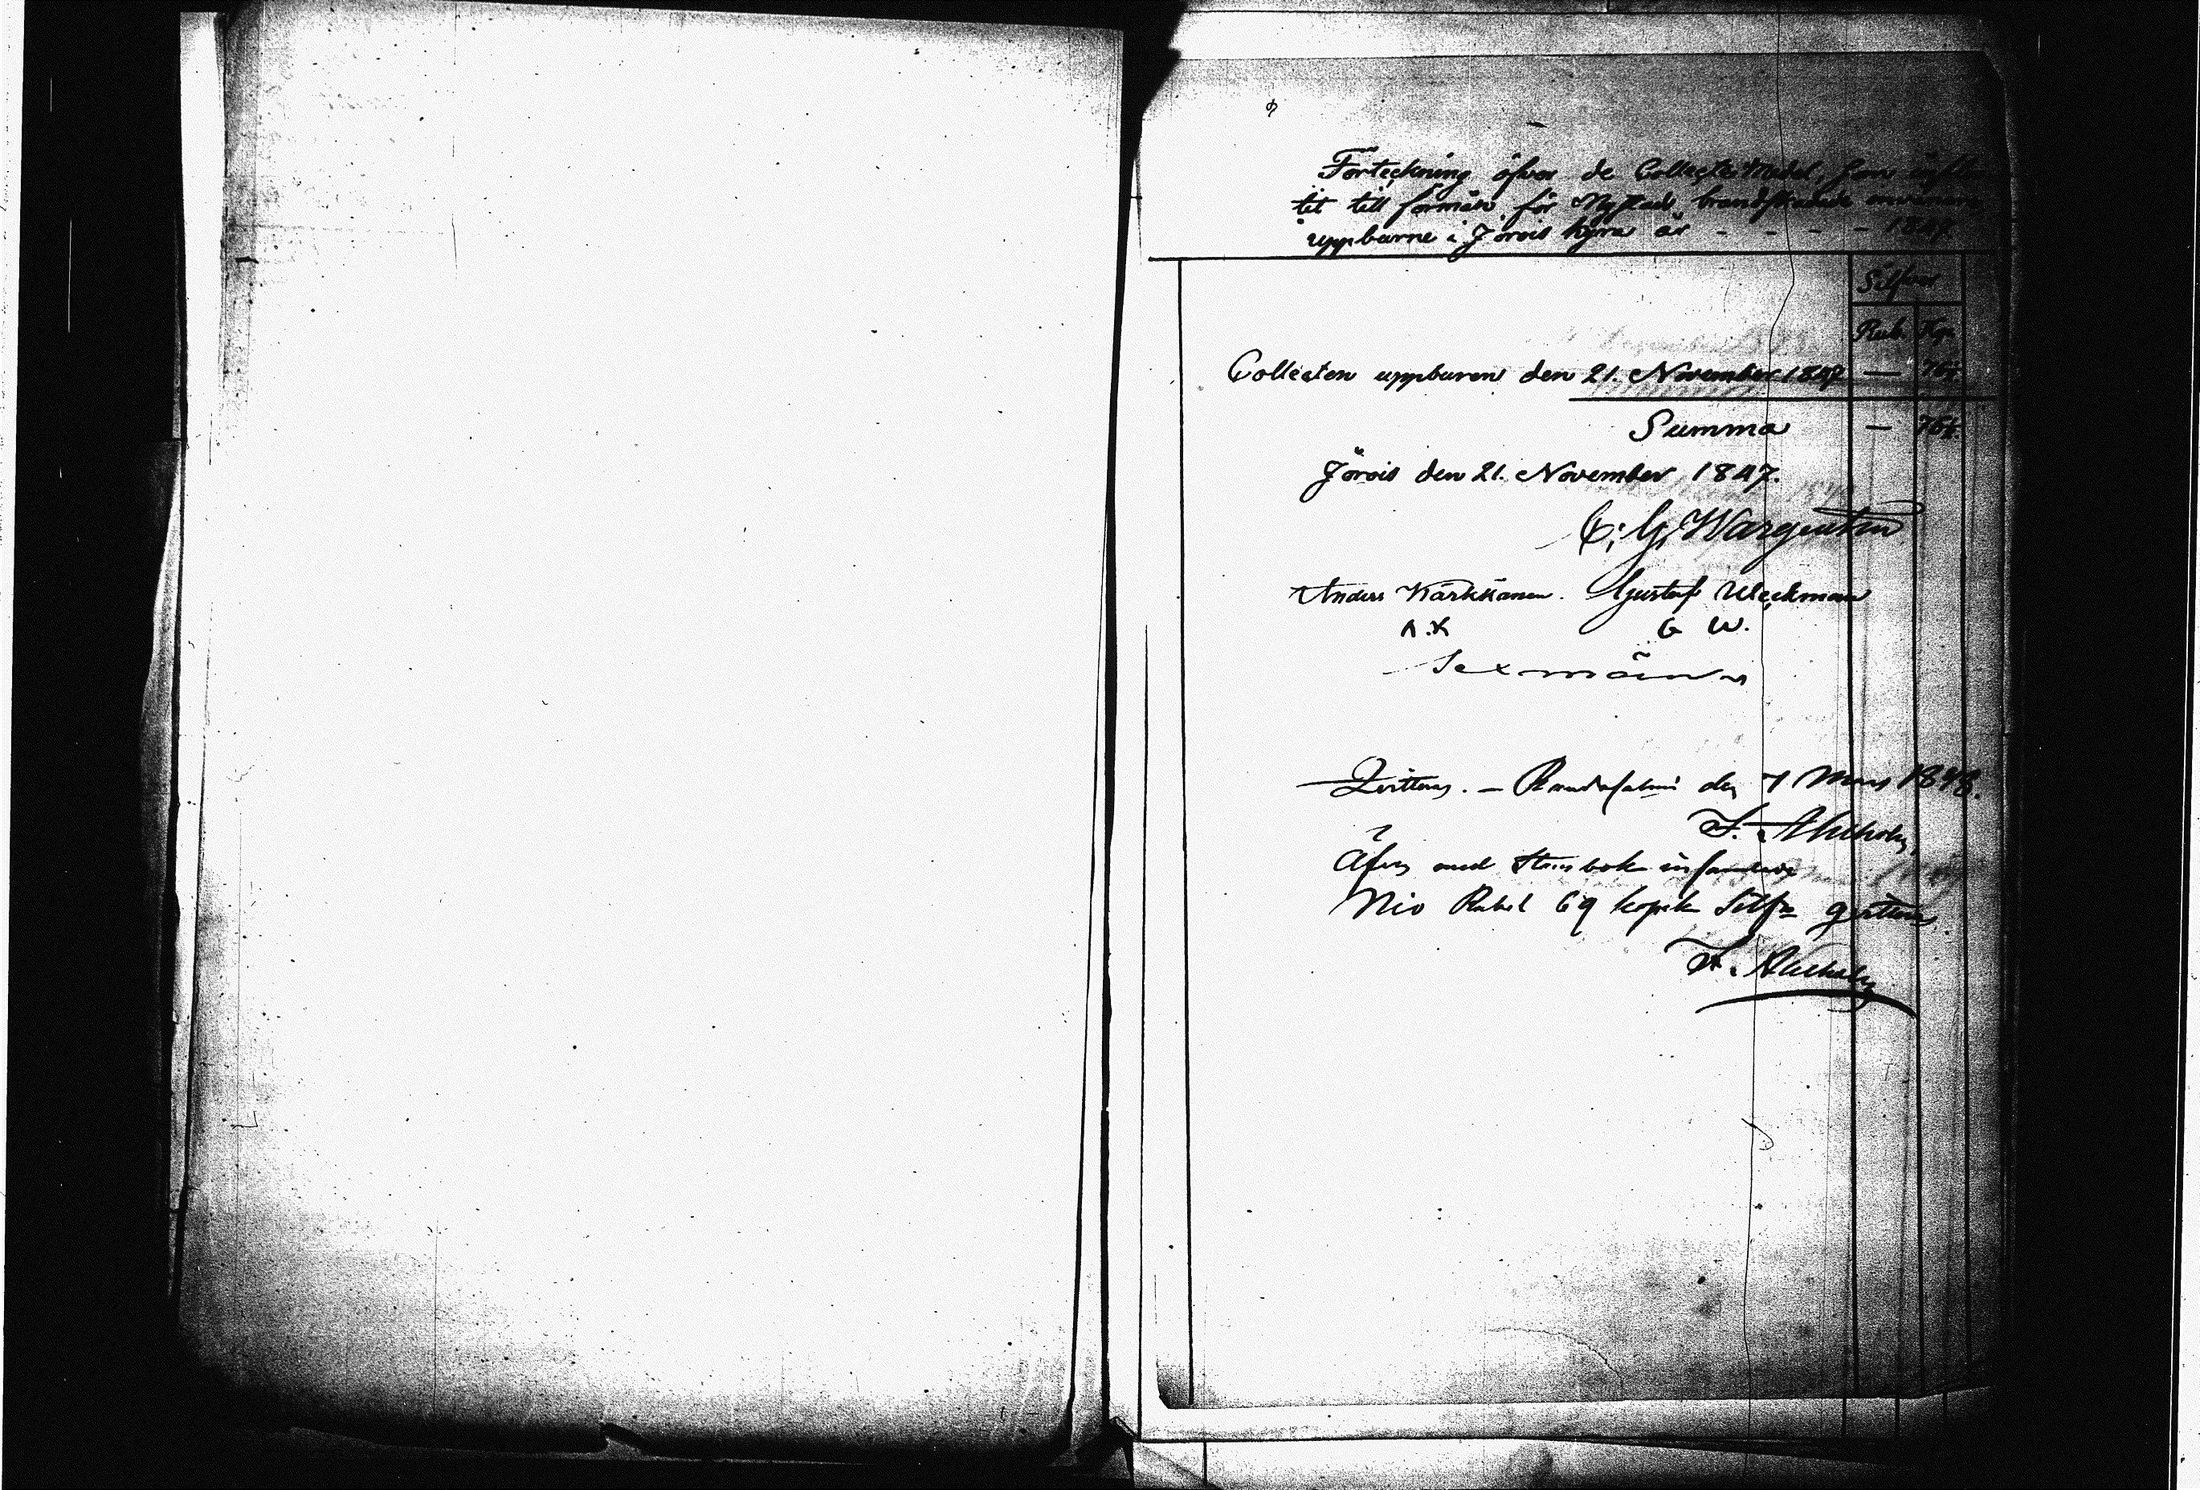 Förteckning öfver de Collecte Medel, som influ
tit till förmån för Nystads brandskadade invånare
uppburne i Jorois kyrka år - - - - 1847.
Silfver
Rub. Kop.
Collecten uppburen den 21. November 1847 — 76½
Summa — 76½
Jorois den 21. November 1847.
C. G. Wargentin
Anders Kärkkäinen. Gustaf Weckman
A. K G W.
Sexmän
Qvitteras. — Randasalmi den 7 Mars 1848.
Äfven med Stambok
Nio Rubel 69 kopek Silfr qvitteras